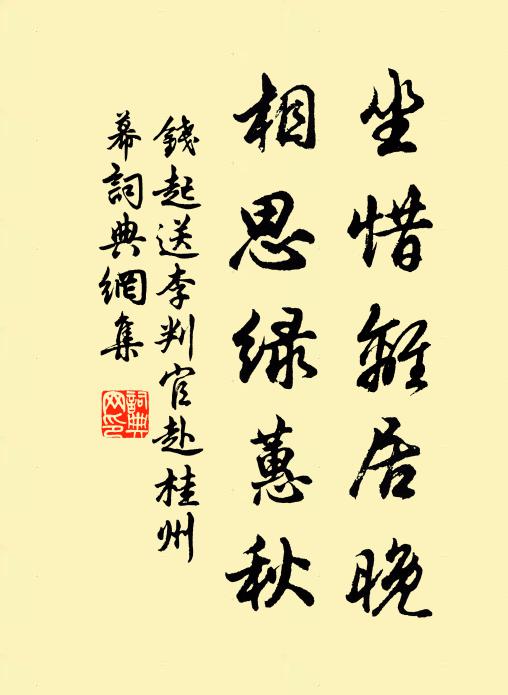 坐惜離居晚
相思緑蕙秋
錢起送李判官赴桂州
幕詞典網集
詞典网印